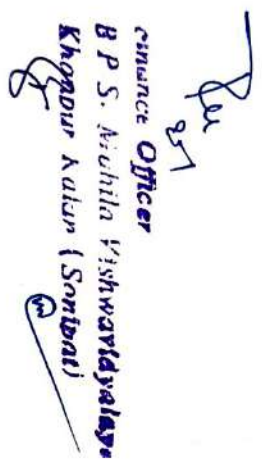 Finance Officer
B P S. Mahila Vishwavidyalaya
Khanpur Kalan (Sonipat)